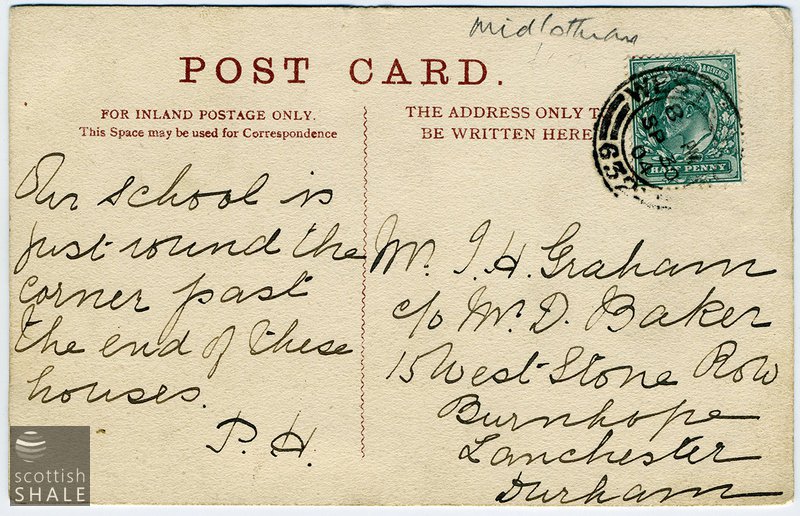 Midlothian
POST CARD.
FOR INLAND POSTAGE ONLY.
This Space may be used for Correspondence
THE ADDRESS ONLY T
BE WRITTEN HERE
& REVENUE
HALF PENNY
WE
SP 20
04
632
Our school is
just round the
corner past
the end of these
houses.
P. H.
Mr. J. H. Graham
c/o Mr. D. Baker
15 West Stone Row
Burnhope
Lanchester
Durham
scottish
SHALE